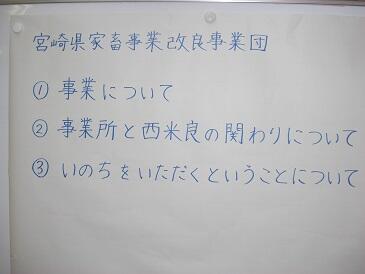 宮崎県家畜事業改良事業団
① 事業について
② 事業所と西米良の関わりについて
③ いのちをいただくということについて